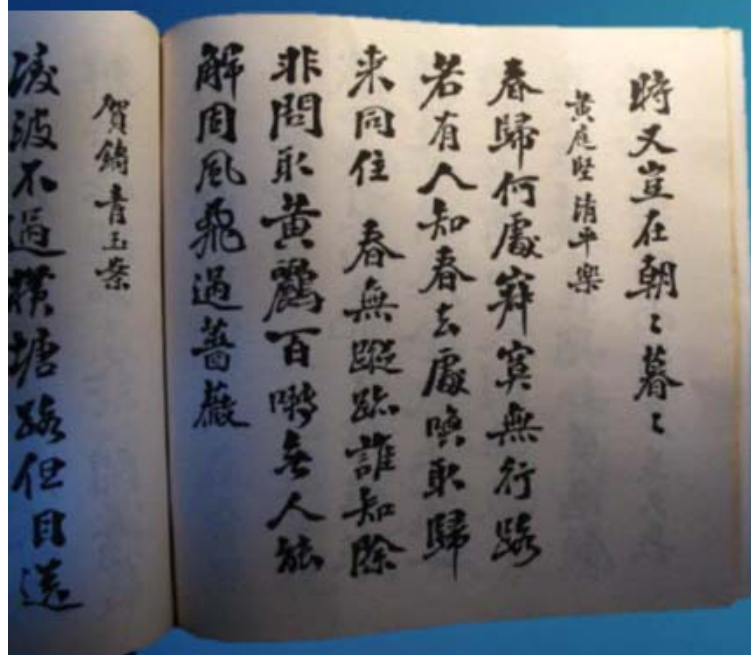 時又豈在朝〻暮〻
黄庭堅清平樂
春歸何處寂寞無行路
若有人知春去處喚取歸
来同住 春無蹤跡誰知除
非問取黄鸝百囀無人能
解因風飛過薔薇
賀鑄青玉案
凌波不過横塘路但目送